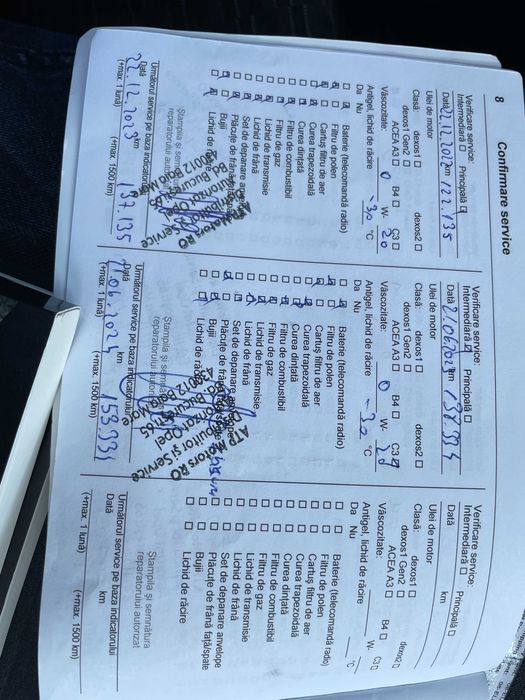 8
Confirmare service
Verificare service:
Intermediară Principală
Data 22.12.2022 km 122.135
Ulei de motor
Clasă: dexos1 dexos2
dexos1 Gen2
ACEA A3 B4 C3
Vâscozitate: 0 W- 20
Antigel, lichid de răcire -30 °C
Da Nu
Baterie (telecomandă radio)
Filtru de polen
Cartuș filtru de aer
Curea trapezoidală
Curea dințată
Filtru de combustibil
Filtru de gaz
Lichid de transmisie
Lichid de frână
Set de depanare anvelope
Plăcuțe de frână
Bujii
Lichid de
Ștampila și semnătura
reparatorului autorizat
ATI Motors RO
Service
Autorizat Opel
București 65
430012 Baia Mare
Următorul service pe baza indicatorului
Dată km
22.12.2023 137.135
(+max. 1 lună) (+max. 1500 km)
Verificare service:
Intermediară Principală
Dată km 138.994
Ulei de motor
Clasă: dexos1 dexos2
dexos1 Gen2
ACEA A3 B4 C3
Vâscozitate: 0 W- 20
Antigel, lichid de răcire -30 °C
Da Nu
Baterie (telecomandă radio)
Filtru de polen
Cartuș filtru de aer
Curea trapezoidală
Curea dințată
Filtru de combustibil
Filtru de gaz
Lichid de transmisie
Lichid de frână
Set de depanare anvelope
Plăcuțe de frână
Bujii
Lichid de răcire
Ștampila și semnătura
reparatorului autorizat
ATI Motors RO
Distribuitor și Service
Autorizat Opel
București 65
430012 Baia Mare
Următorul service pe baza indicatorului
Dată km
06.2024 153.994
(+max. 1 lună) (+max. 1500 km)
Verificare service:
Intermediară Principală
Dată km
Ulei de motor
Clasă: dexos1 dexos2
dexos1 Gen2
ACEA A3 B4 C3
Vâscozitate: W-
Antigel, lichid de răcire °C
Da Nu
Baterie (telecomandă radio)
Filtru de polen
Cartuș filtru de aer
Curea trapezoidală
Curea dințată
Filtru de combustibil
Filtru de gaz
Lichid de transmisie
Lichid de frână
Set de depanare anvelope
Plăcuțe de frână față/spate
Bujii
Lichid de răcire
Ștampila și semnătura
reparatorului autorizat
Următorul service pe baza indicatorului
Dată km
(+max. 1 lună) (+max. 1500 km)